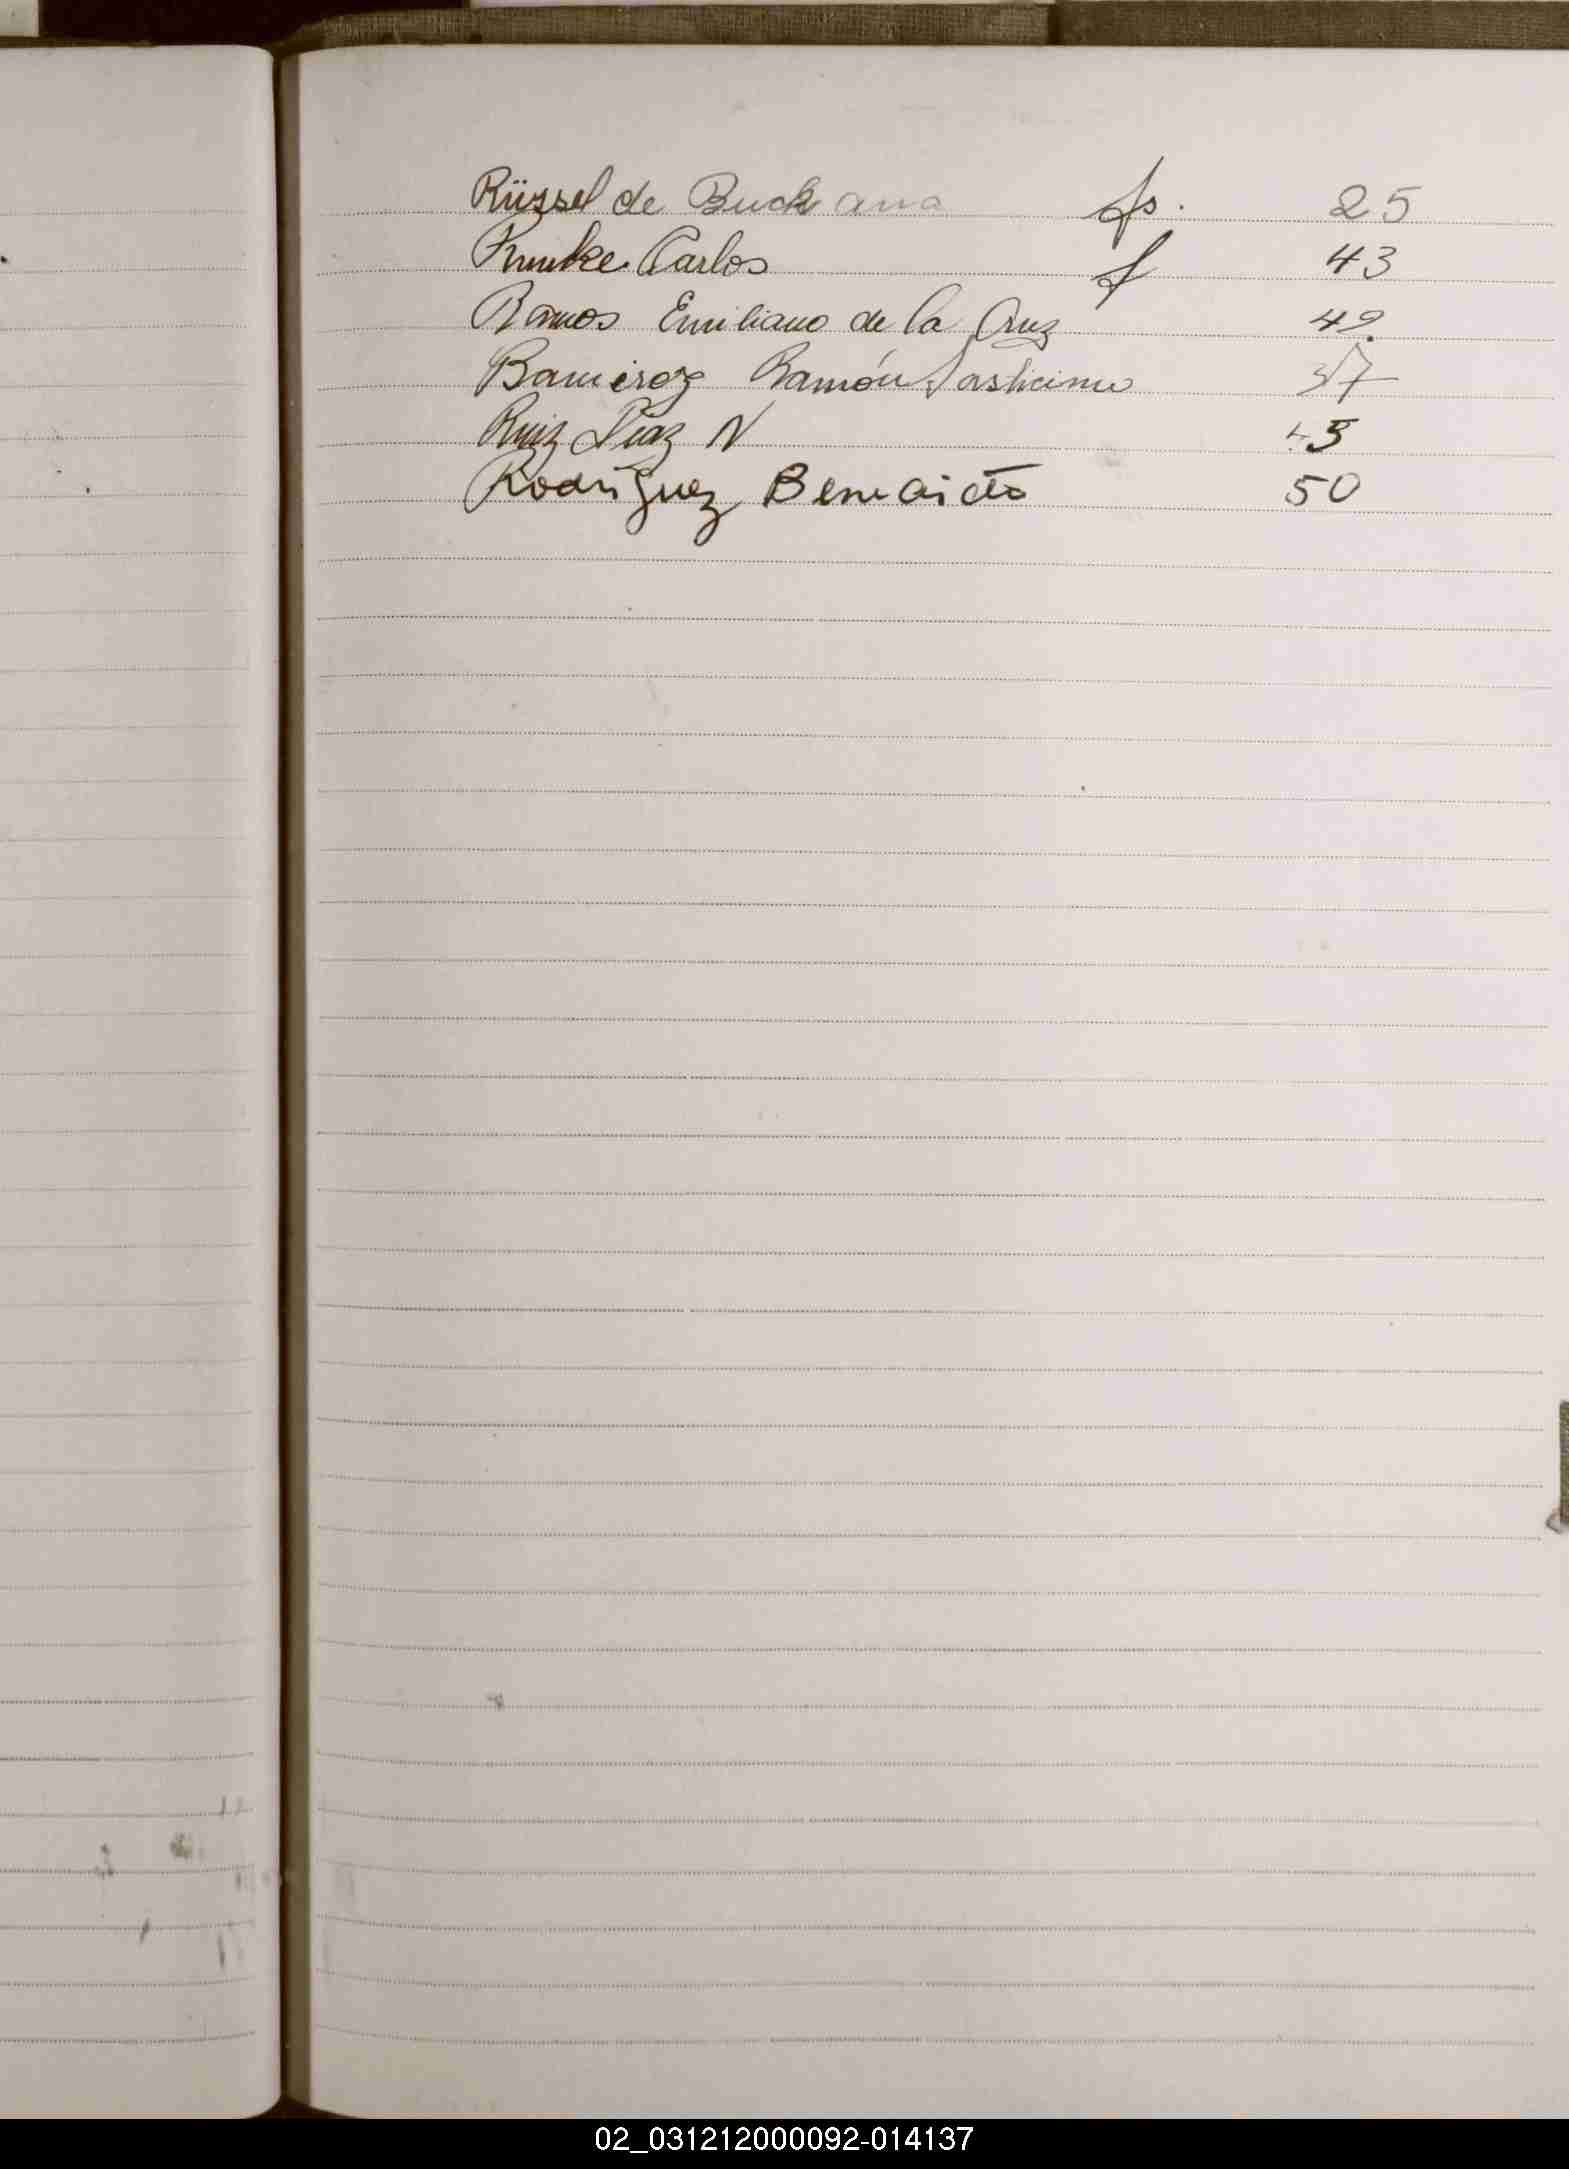 Rüssel de Buck Ana fs. 25
Runke Carlos f 43
Ramos Emiliano de la Cruz 49
Ramirez Ramón 37
Ruiz Diaz N 45
Rodríguez Benedicto 50
02_031212000092-014137